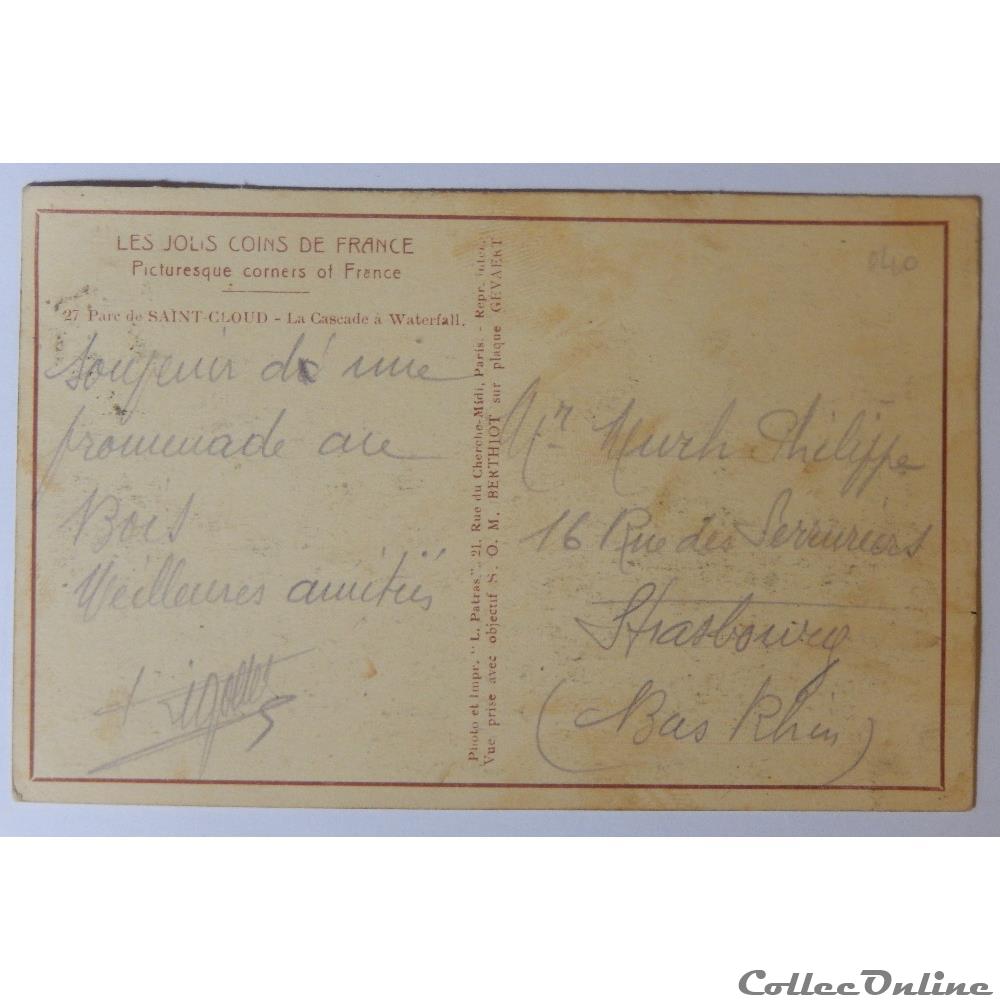 LES JOLIS COINS DE FRANCE
Picturesque corners of France
27 Parc de SAINT-CLOUD - La Cascade à Waterfall.
Souvenir de une
promenade au
Bois
Meilleures amitiés
Photo et Impr. "L. Patras", 21, Rue du Cherche-Midi, Paris. - Repr. inter.
Vue prise avec objectif S. O. M. BERTHIOT sur plaque GEVAERT
040
Mr Philippe
16 Rue des Serruriers
Strasbourg
(Bas Rhin)
CollecOnline